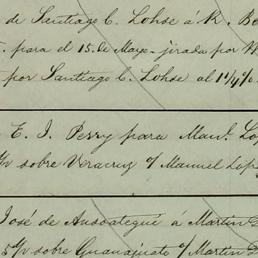 de Santiago C. Lohse á K. Be
para el 15 de Mayo - jirada por W
por Santiago C. Lohse al 1 1/4 %
E. J. Perry para Manl. Lo
d/v sobre Veracruz c/ Manuel Lop
José de Ansoategui á Martin D
5 d/v sobre Guanajuato c/ Martin D